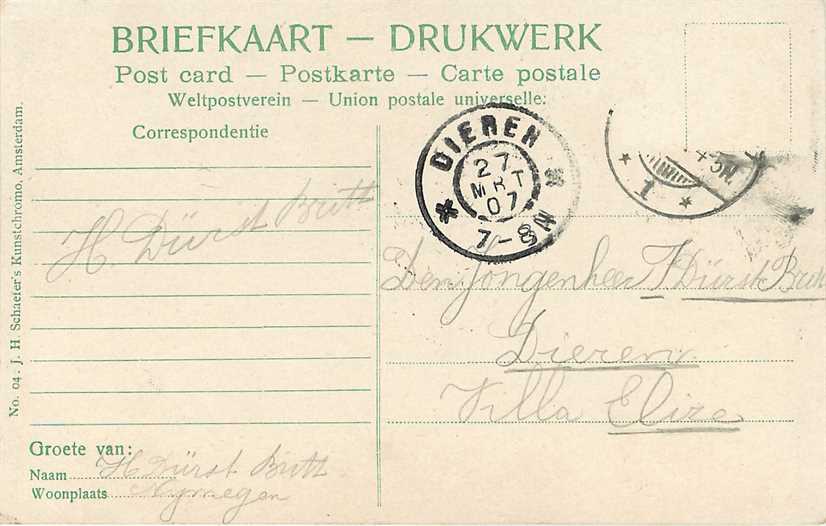 BRIEFKAART — DRUKWERK
Post card — Postkarte — Carte postale
Weltpostverein — Union postale universelle.
Correspondentie
No. 04. J. H. Schaefer's Kunstchromo, Amsterdam.
H. Dürst Britt
DIEREN
27
MRT
07
7-8N
1
Den Jongenheer J Dürst Britt
Dieren
Villa Elize
Groete van:
Naam H Dürst Britt
Woonplaats Nymegen